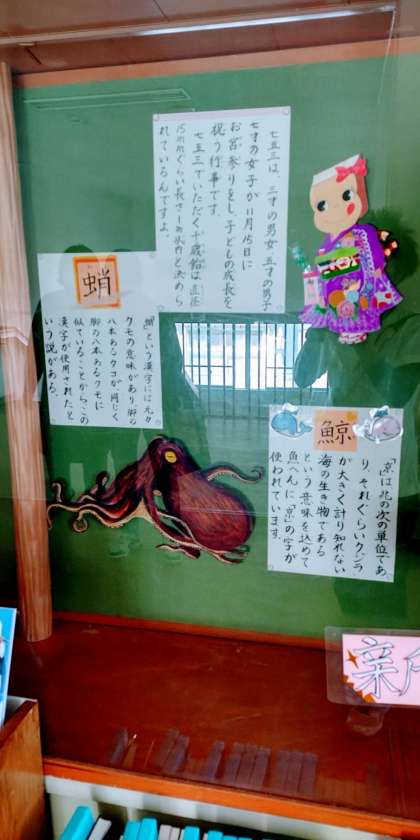 七五三は、三才の男女 五才の男子
七才の女子が11月15日に
お宮参りをし、子どもの成長を
祝う行事です。
七五三でいただく千歳飴は、直径
15mmぐらい長さ1m以内と決めら
れているんですよ。
蛸
「蛸」という漢字には元々
クモの意味があり、脚の
八本あるタコが同じく
脚の八本あるクモに
似ていることから、この
漢字が使用されたと
いう説がある。
鯨
「京」は兆の次の単位であ
り、それぐらいクジラ
が大きく計り知れない
海の生き物である
という意味を込めて
魚へんに「京」の字が
使われています。